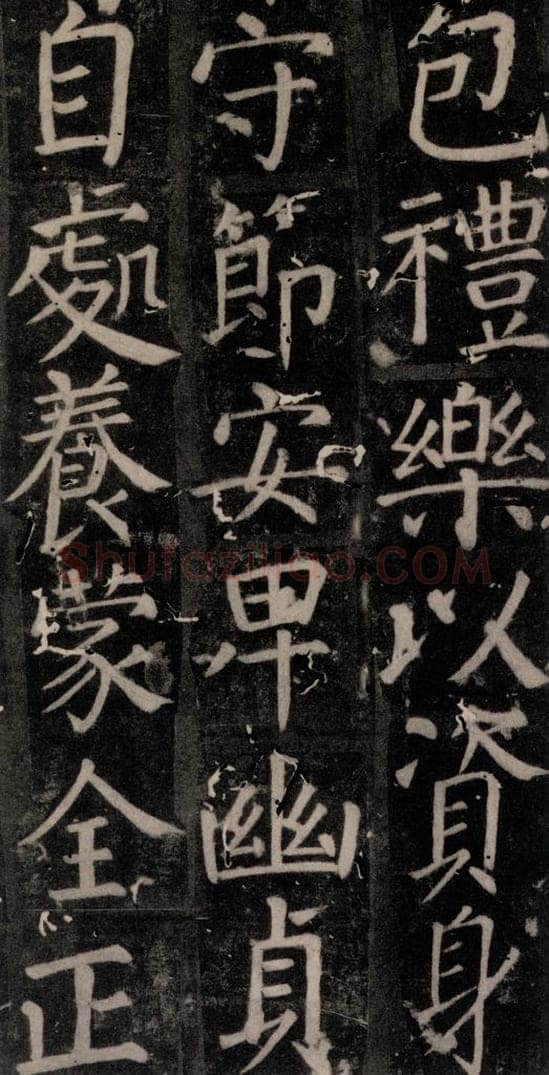 包禮樂以資身
守節安卑幽貞
自處養蒙全正
Shufaziliao.COM